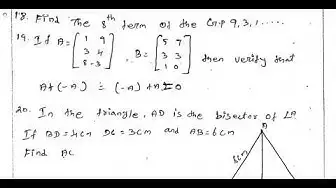 18. Find The 8th term of the G.P 9, 3, 1 .....
19. If A = [1 9
3 4
8 -3] B = [5 7
3 3
1 0] then verify that
A+(-A) = (-A)+A = 0
20. In the triangle, AD is the bisector of ∠A
If BD = 4cm DC = 3cm and AB = 6cm
Find AC
A
6cm